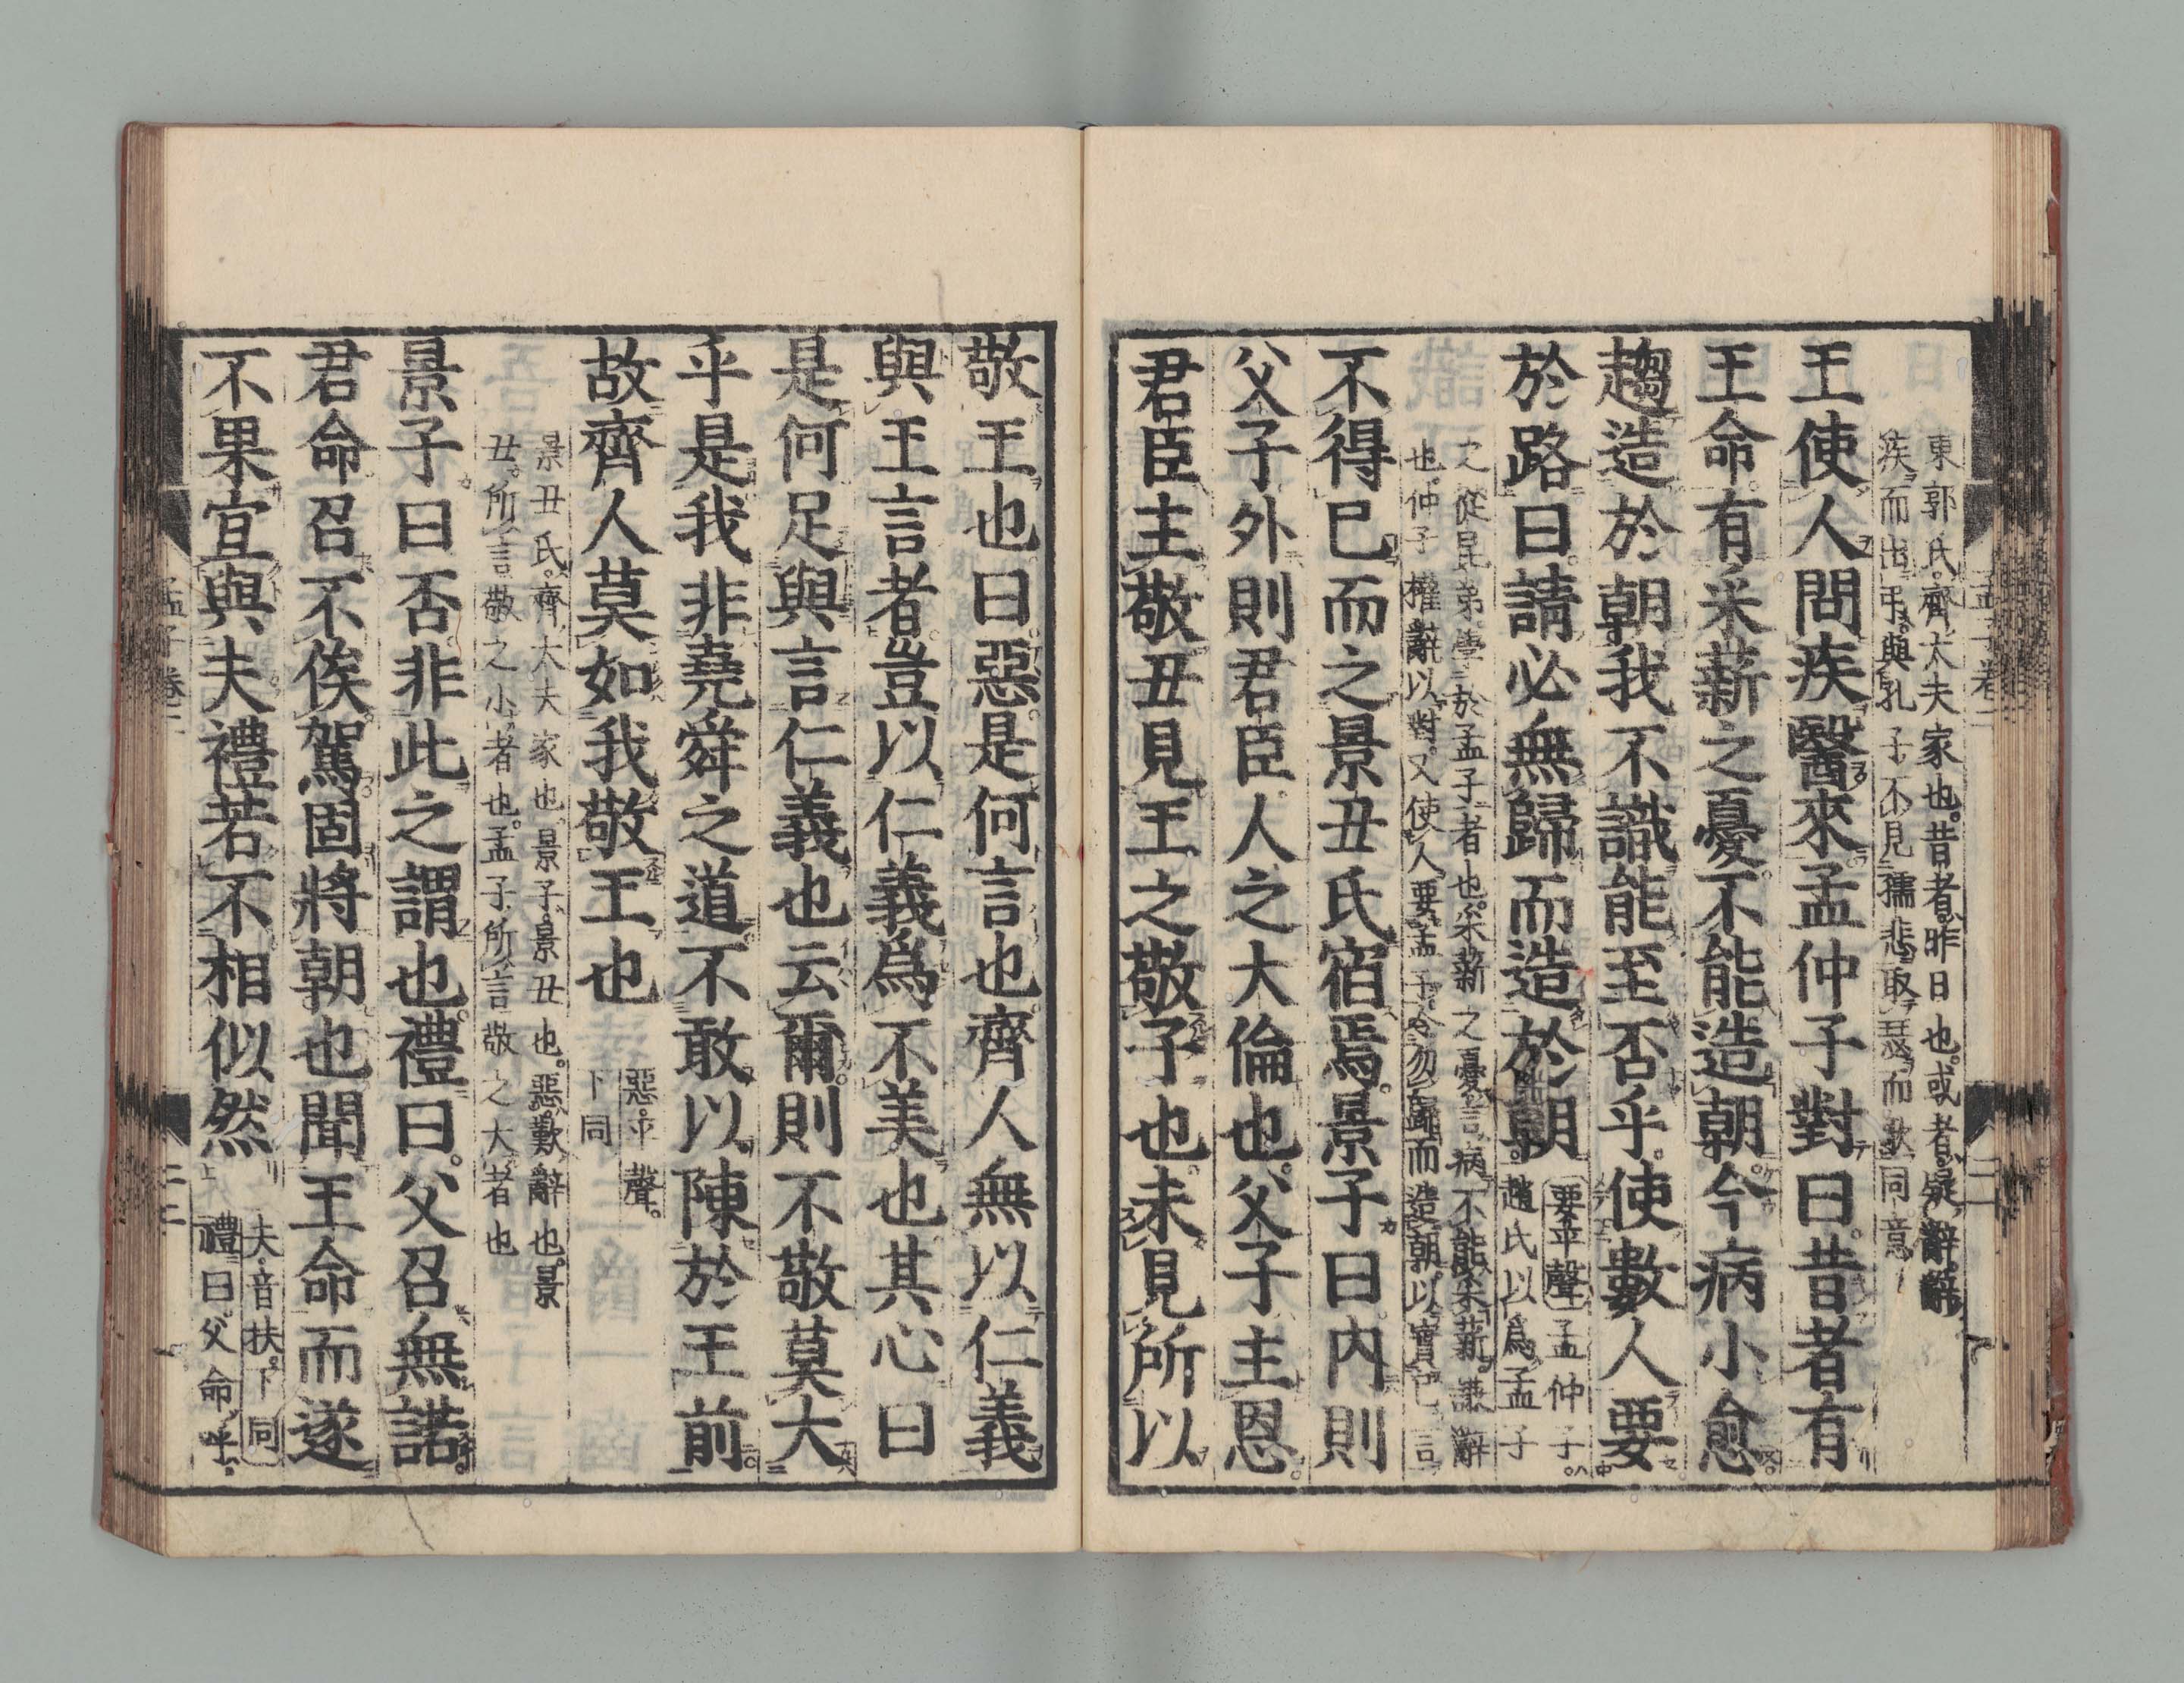 東郭氏齊大夫家也昔者昨日也或者疑辭辭
疾而出弔與孔子不見孺悲取瑟而歌同意
王使人問疾醫來孟仲子對曰昔者有
王命有采薪之憂不能造朝今病小愈
趨造於朝我不識能至否乎使數人要
於路曰請必無歸而造於朝
要平聲孟仲子
趙氏以爲孟子
之從昆弟學於孟子者也采薪之憂言病不能采薪謙辭
也仲子權辭以對又使人要孟子令勿歸而造朝以實己言
不得已而之景丑氏宿焉景子曰內則
父子外則君臣人之大倫也父子主恩
君臣主敬丑見王之敬子也未見所以
敬王也曰惡是何言也齊人無以仁義
與王言者豈以仁義爲不美也其心曰
是何足與言仁義也云爾則不敬莫大
乎是我非堯舜之道不敢以陳於王前
故齊人莫如我敬王也
惡平聲
下同
景丑氏齊大夫家也景子景丑也惡歎辭也景
丑所言敬之小者也孟子所言敬之大者也
景子曰否非此之謂也禮曰父召無諾
君命召不俟駕固將朝也聞王命而遂
不果宜與夫禮若不相似然
夫音扶下同
禮曰父命呼
孟子卷二